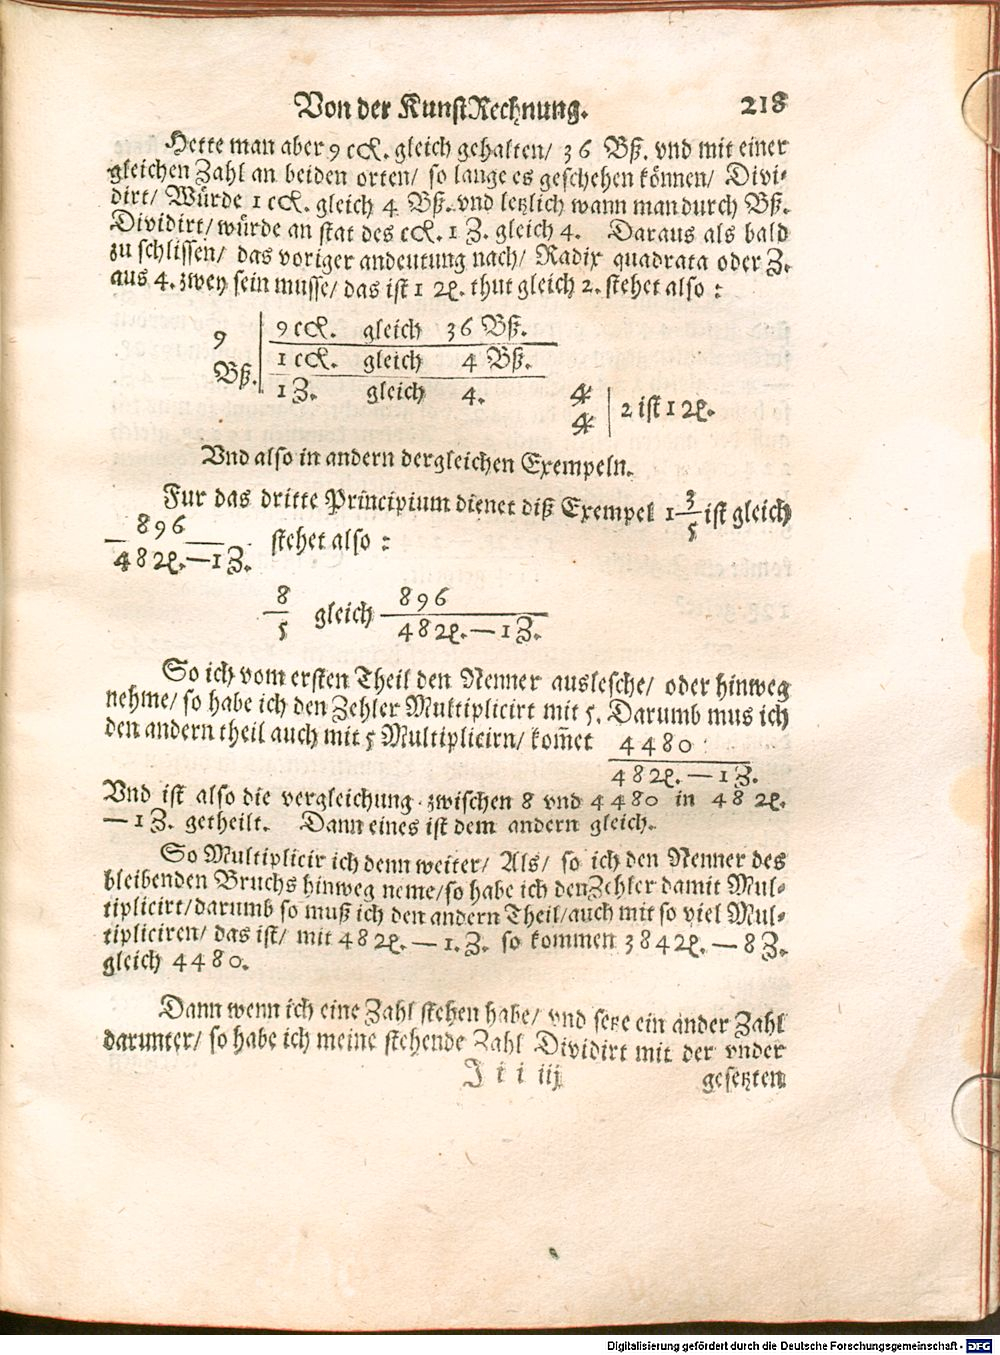 Von der KunstRechnung. 218
Hette man aber 9 ccl. gleich gehalten/ 36 Bß. vnd mit einer
gleichen Zahl an beiden orten/ so lange es geschehen können/ Divi-
dirt/ Würde 1 ccl. gleich 4 Bß. vnd letzlich wann man durch Bß.
Dividirt/ würde an stat des ccl. 1 Z. gleich 4. Daraus als bald
zu schlissen/ das voriger andeutung nach/ Radix quadrata oder Z.
aus 4. zwey sein musse/ das ist 1 2l. thut gleich 2. stehet also :
9 | 9 ccl. gleich 36 Bß.
Bß. | 1 ccl. gleich 4 Bß.
1 Z. gleich 4.
4
4 | 2 ist 1 2l.
Vnd also in andern dergleichen Exempeln.
Fur das dritte Principium dienet diß Exempel 1 3/5 ist gleich
896
48 2l. — 1 Z. stehet also :
8 896
5 gleich 48 2l. — 1 Z.
So ich vom ersten Theil den Nenner auslesche/ oder hinweg
nehme/ so habe ich den Zehler Multiplicirt mit 5. Darumb mus ich
den andern theil auch mit 5 Multiplicirn/ kom̃et 4480
48 2l. — 1 Z.
Vnd ist also die vergleichung zwischen 8 vnd 4480 in 48 2l.
— 1 Z. getheilt. Dann eines ist dem andern gleich.
So Multiplicir ich denn weiter/ Als/ so ich den Nenner des
bleibenden Bruchs hinweg neme/ so habe ich den Zehler damit Mul-
tiplicirt/ darumb so muß ich den andern Theil/ auch mit so viel Mul-
tipliciren/ das ist/ mit 48 2l. — 1. Z. so kommen 384 2l. — 8 Z.
gleich 4480.
Dann wenn ich eine Zahl stehen habe/ vnd setze ein ander Zahl
darunter/ so habe ich meine stehende Zahl Dividirt mit der vnder
I i i iij gesetzten
Digitalisierung gefördert durch die Deutsche Forschungsgemeinschaft - DFG